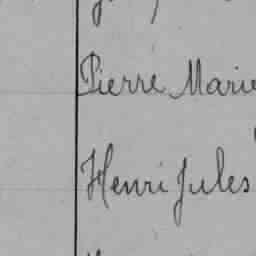 Pierre Marie
Henri Jules